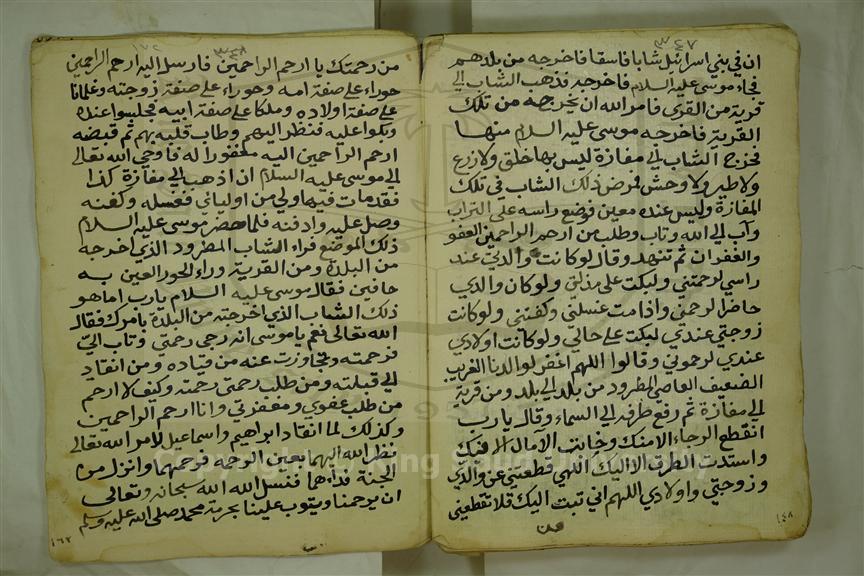 ٣٤٧
ان في بني اسرائيل شابا فاسقا فاخرجه من بلدهم
فجاء موسى عليه السلام فاخرجه فذهب الشاب الى
قرية من القرى فامر الله ان يخرجه من تلك
القرية فاخرجه موسى عليه السلام منها
فخرج الشاب الى مفازة ليس بها خلق ولا زرع
ولا طير ولا وحش فمرض ذلك الشاب في تلك
المفازة وليس عنده معين فوضع راسه على التراب
وآب الى الله وتاب وطلب من ارحم الراحمين العفو
والغفران ثم تنهد وقال لو كانت والدتي عند
راسي لرحمتني ولبكت على مذلتي ولو كان والدي
حاضرا لرحمني واذا مت غسلني وكفنني ولو كانت
زوجتي عندي لبكت على حالي ولو كانت اولادي
عندي لرحموني وقالوا اللهم اغفر لوالدنا الغريب
الضعيف العاصي المطرود من بلد الى بلد ومن قرية
الى مفازة ثم رفع طرفه الى السماء وقال يا رب
انقطع الرجاء الا منك وخابت الامال الا فيك
واستدت الطرق الا اليك الهي قطعتني عن والدي
وزوجتي واولادي اللهم اني تبت اليك فلا تقطعني
من
١٤٨
٣٤٨
١٦٢
من رحمتك يا ارحم الراحمين فارسل اليه ارحم الراحمين
حوراء على صفة امه وحوراء على صفة زوجته وغلمانا
على صفة اولاده وملكا على صفة ابيه فجلسوا عنده
وبكوا عليه فنظر اليهم وطاب قلبه بهم ثم قبضه
ارحم الراحمين اليه مغفورا له فاوحى الله تعالى
الى موسى عليه السلام ان اذهب الى مفازة كذا
فقد مات فيها ولي من اوليائي فغسله وكفنه
وصل عليه وادفنه فلما حضر موسى عليه السلام
ذلك الموضع فراء الشاب المطرود الذي اخرجه
من البلدة ومن القرية وراء الحور العين به
حافين فقال موسى عليه السلام يا رب اما هو
ذلك الشاب الذي اخرجته من البلدة بامرك فقال
الله تعالى نعم يا موسى انه رجى رحمتي وتاب الي
فرحمته وتجاوزت عنه من قياده ومن انقاد
الى قبلته ومن طلب رحمتي رحمته وكيف لا ارحم
من طلب عفوي ومغفرتي وانا ارحم الراحمين
وكذلك لما انقاد ابراهيم واسماعيل لامر الله تعالى
نظر الله اليهما بعين الرحمة فرحمهما وانزل من
الجنة فداءهما فنسل الله الله سبحانه وتعالى
ان يرحمنا ويتوب علينا بحرمة محمد صلى الله عليه وسلم
١٦٢